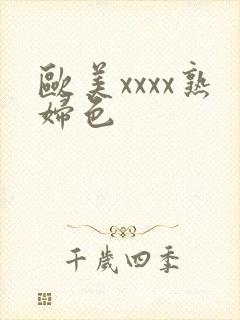 歐美xxxx熟
婦色
千歲四季